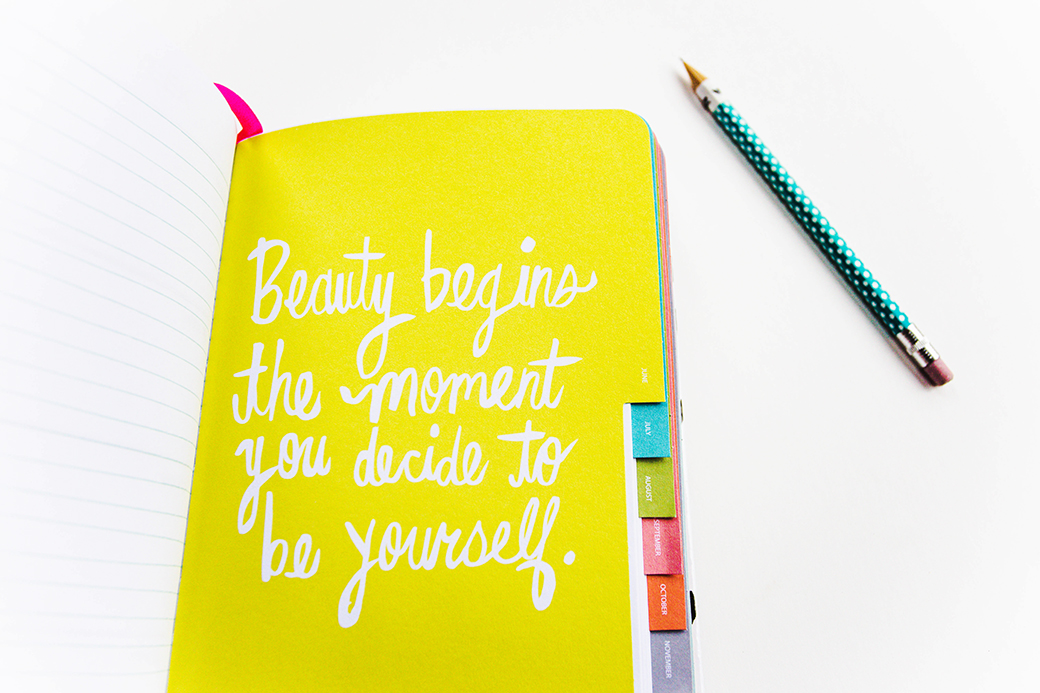 Beauty begins
the moment
you decide to
be yourself.
JUNE
JULY
AUGUST
SEPTEMBER
OCTOBER
NOVEMBER